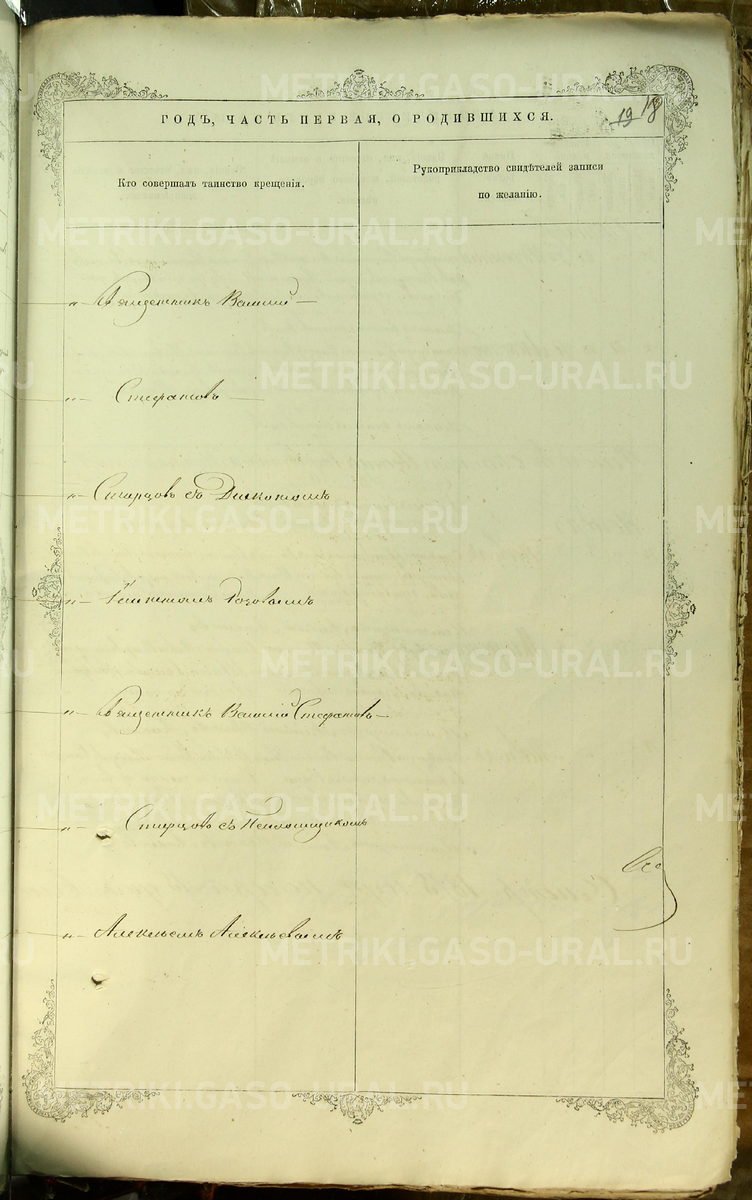 ГОДЪ, ЧАСТЬ ПЕРВАЯ, О РОДИВШИХСЯ.
19 18
Кто совершалъ таинство крещенія.
Рукоприкладство свидѣтелей записи
по желанію.
Священникъ Василій
Стефановъ
Старцовъ съ Дьякономъ
Розовымъ
Священникъ Василій Стефановъ
Старцовъ съ Пономщикомъ
Алексѣемъ Алексѣевымъ
METRIKI.GASO-URAL.RU